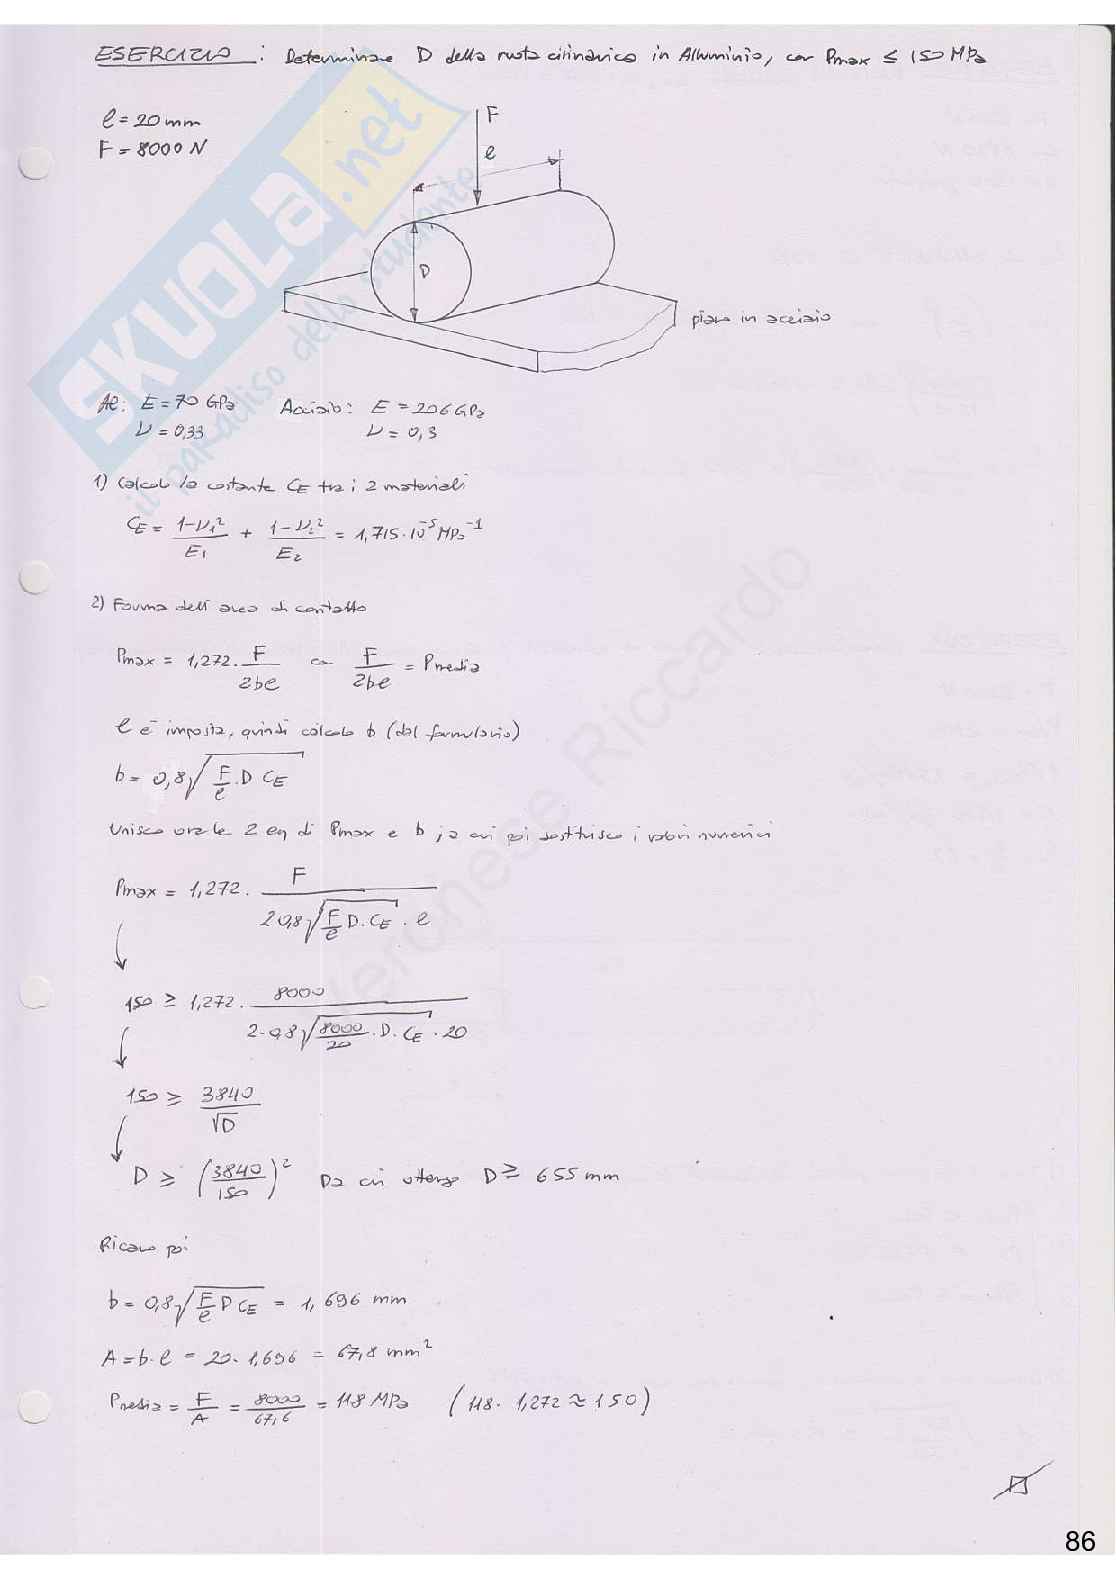 ESERCIZIO : Determinare D della ruota cilindrica in Alluminio, con Pmax ≤ 150 MPa
l = 20 mm
F = 8000 N
F
l
D
piano in acciaio
Al: E = 70 GPa Acciaio: E = 206 GPa
ν = 0,33 ν = 0,3
1) Calcolo la costante CE tra i 2 materiali
CE = (1-ν1²)/E1 + (1-ν2²)/E2 = 1,715·10⁻⁵ MPa⁻¹
2) Forma dell'area di contatto
Pmax = 1,272 · F/(2bl) con F/(2bl) = Pmedia
l è imposta, quindi calcolo b (dal formulario)
b = 0,8 √(F/l · D CE)
Unisco ora le 2 eq di Pmax e b, a cui poi sostituisco i valori numerici
Pmax = 1,272 · F/(2 0,8 √(F/l D · CE) · l)
150 ≥ 1,272 · 8000/(2·0,8 √(8000/20 · D · CE) · 20)
150 ≥ 3840/√D
D ≥ (3840/150)² Da cui ottengo D ≥ 655 mm
Ricavo poi
b = 0,8 √(F/l D CE) = 1,696 mm
A = b·l = 20 · 1,696 = 67,8 mm²
Pmedia = F/A = 8000/67,6 = 118 MPa (118 · 1,272 ≈ 150)
86
SKUOLA.net
il paradiso dello studente
Veronese Riccardo